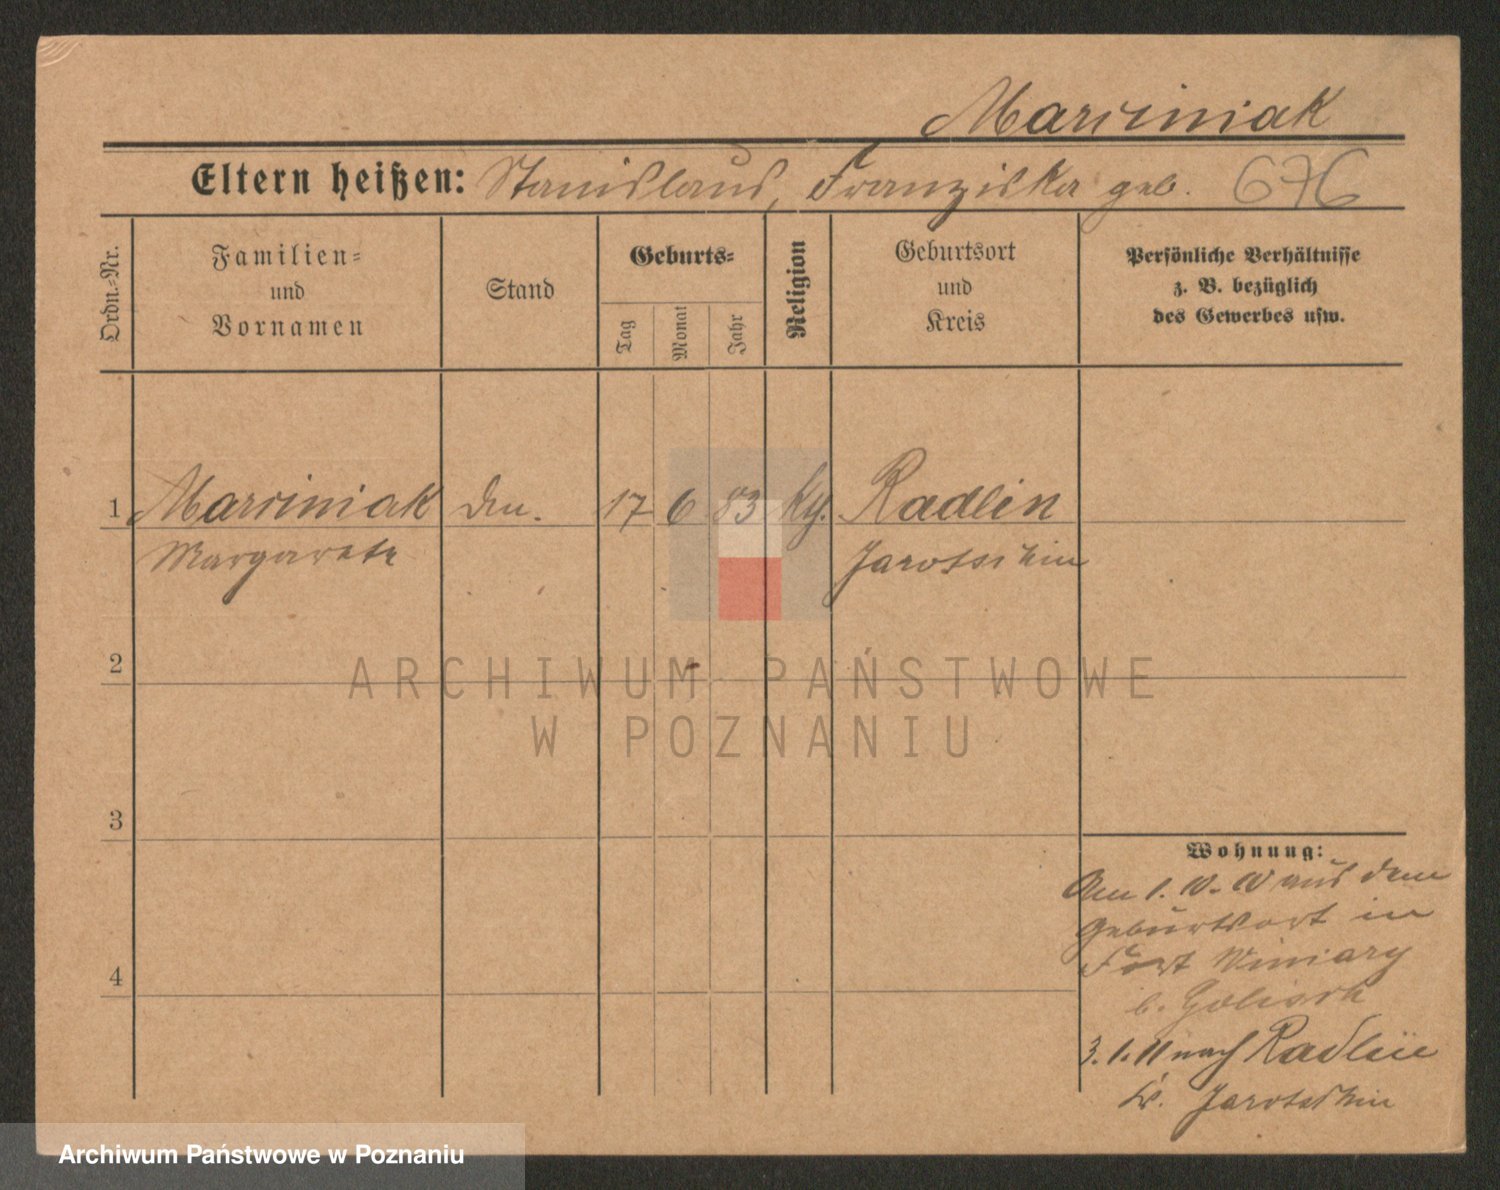 Marciniak
Eltern heißen: Stanislaus, Franziska geb. 676
Ordn.-Nr.
Familien- und Vornamen
Stand
Geburts-
Tag
Monat
Jahr
Religion
Geburtsort und Kreis
Persönliche Verhältnisse
z. B. bezüglich
des Gewerbes usw.
1 Marciniak 17 6 83 Radlin
Margarete Jarotschin
2
3
4
Wohnung:
Am 1. 10. 10 aus dem
Geburtsort in
Fort Winiary
b.
3. 1. 11 nach Radlin
Kr. Jarotschin
ARCHIWUM PAŃSTWOWE
W POZNANIU
Archiwum Państwowe w Poznaniu